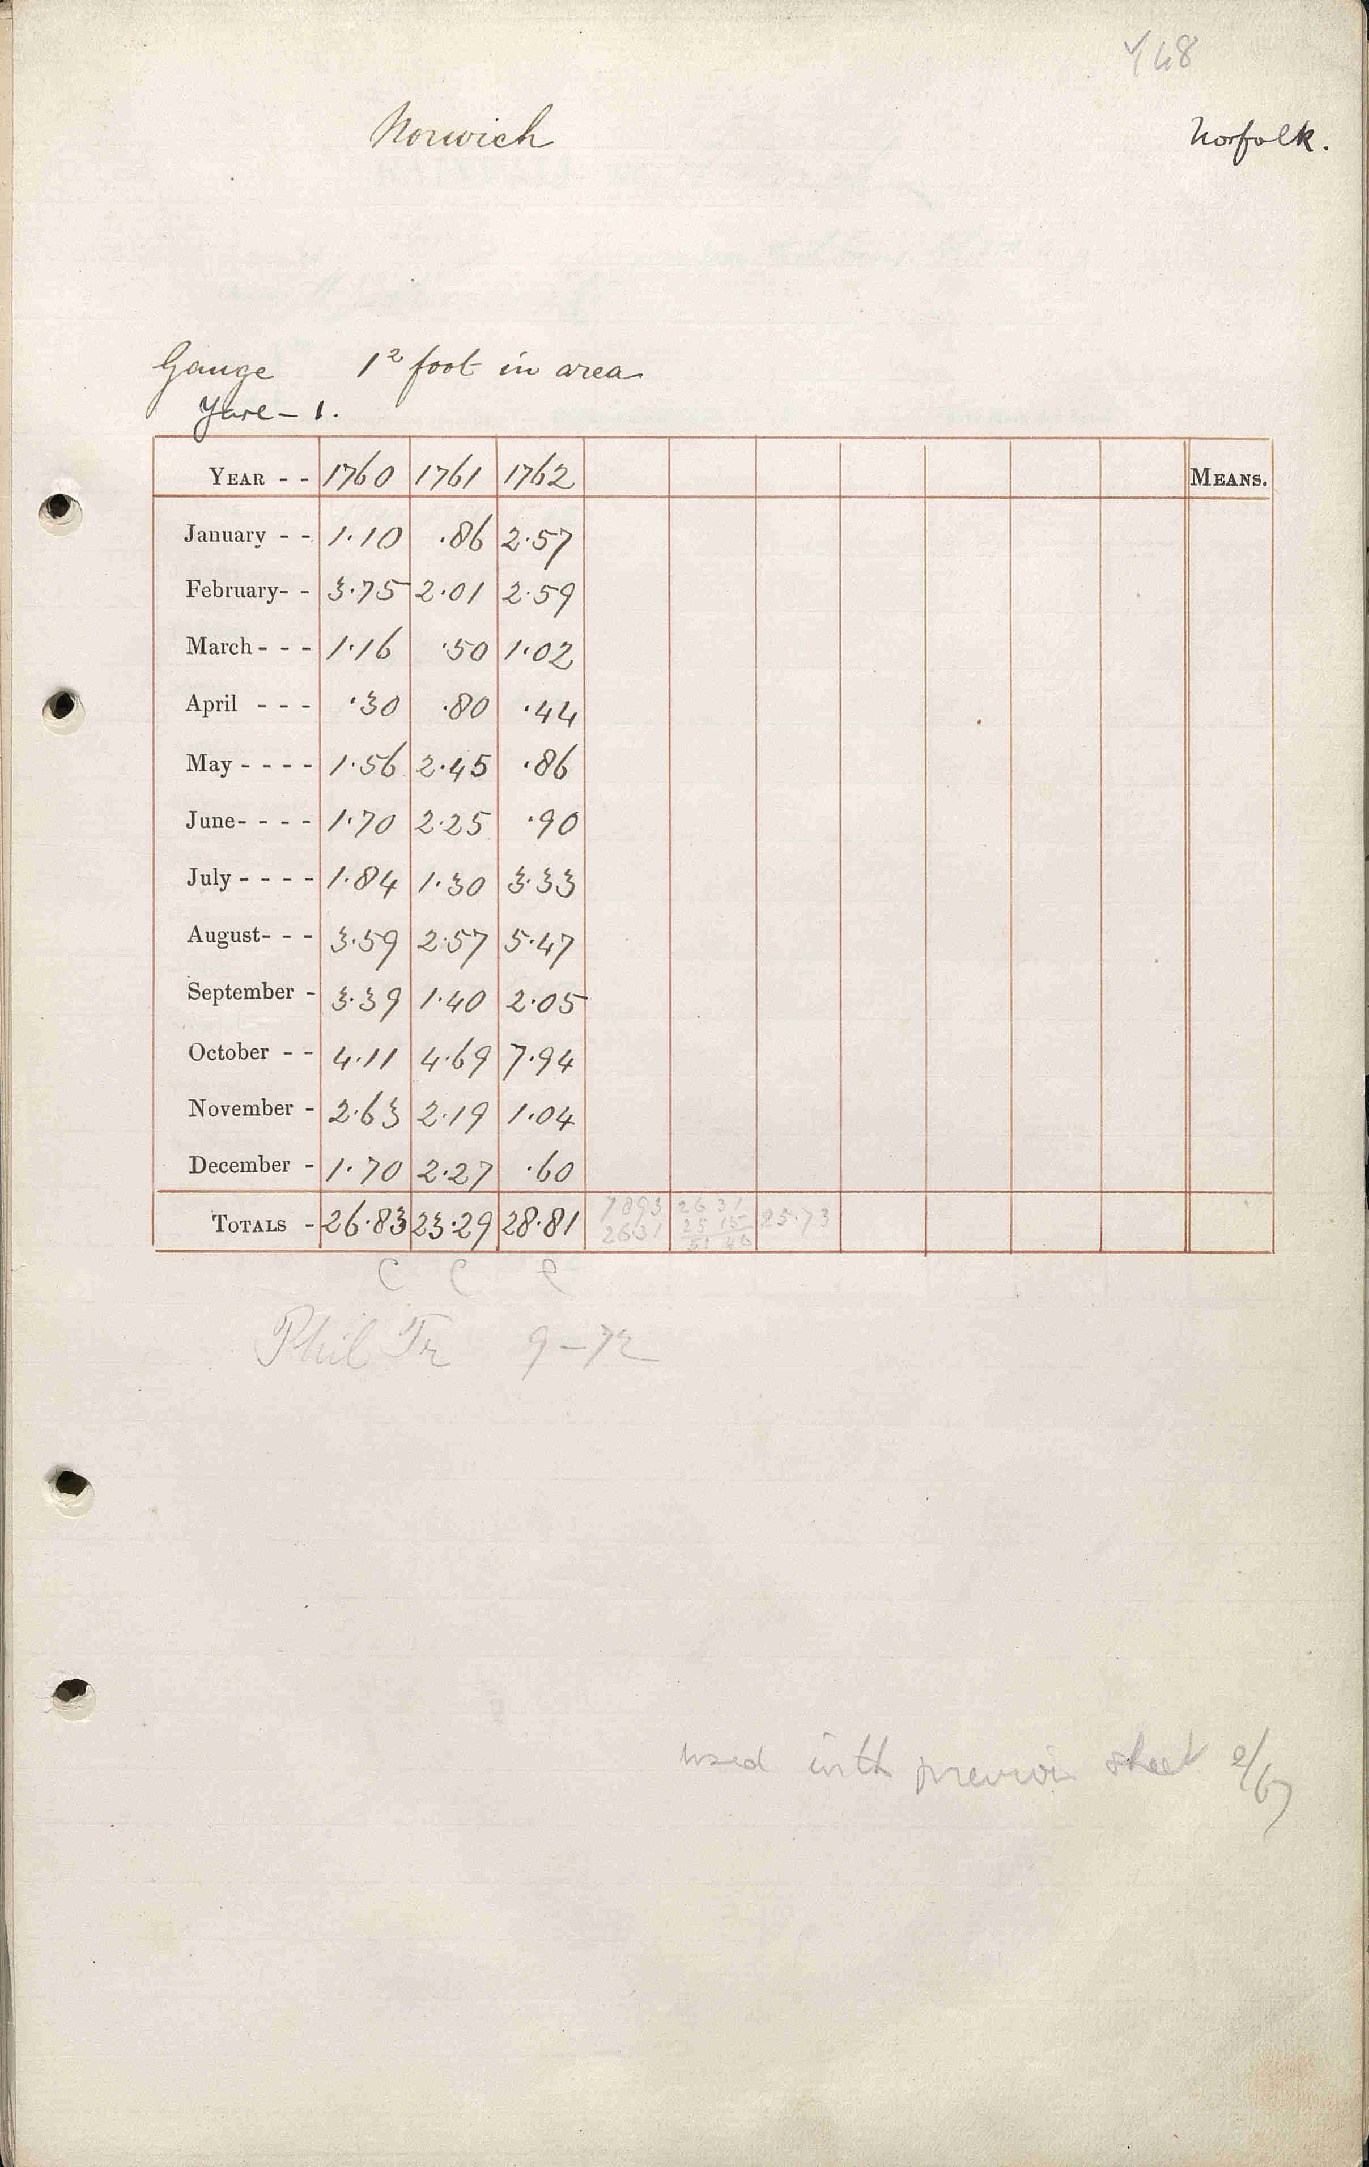 Y48
Norwich Norfolk.
Gauge 1² foot in area
Yare – 1.
YEAR - - 1760 1761 1762 MEANS.
January - - 1.10 .86 2.57
February- - 3.75 2.01 2.59
March - - - 1.16 .50 1.02
April - - - .30 .80 .44
May - - - - 1.56 2.45 .86
June- - - - 1.70 2.25 .90
July - - - - 1.84 1.30 3.33
August- - - 3.59 2.57 5.47
September - 3.39 1.40 2.05
October - - 4.11 4.69 7.94
November - 2.63 2.19 1.04
December - 1.70 2.27 .60
TOTALS - 26.83 23.29 28.81 7893 2631 25.73
2631 25 15
51 46
C C C
Phil Tr 9–72
used with previous sheet 2/67